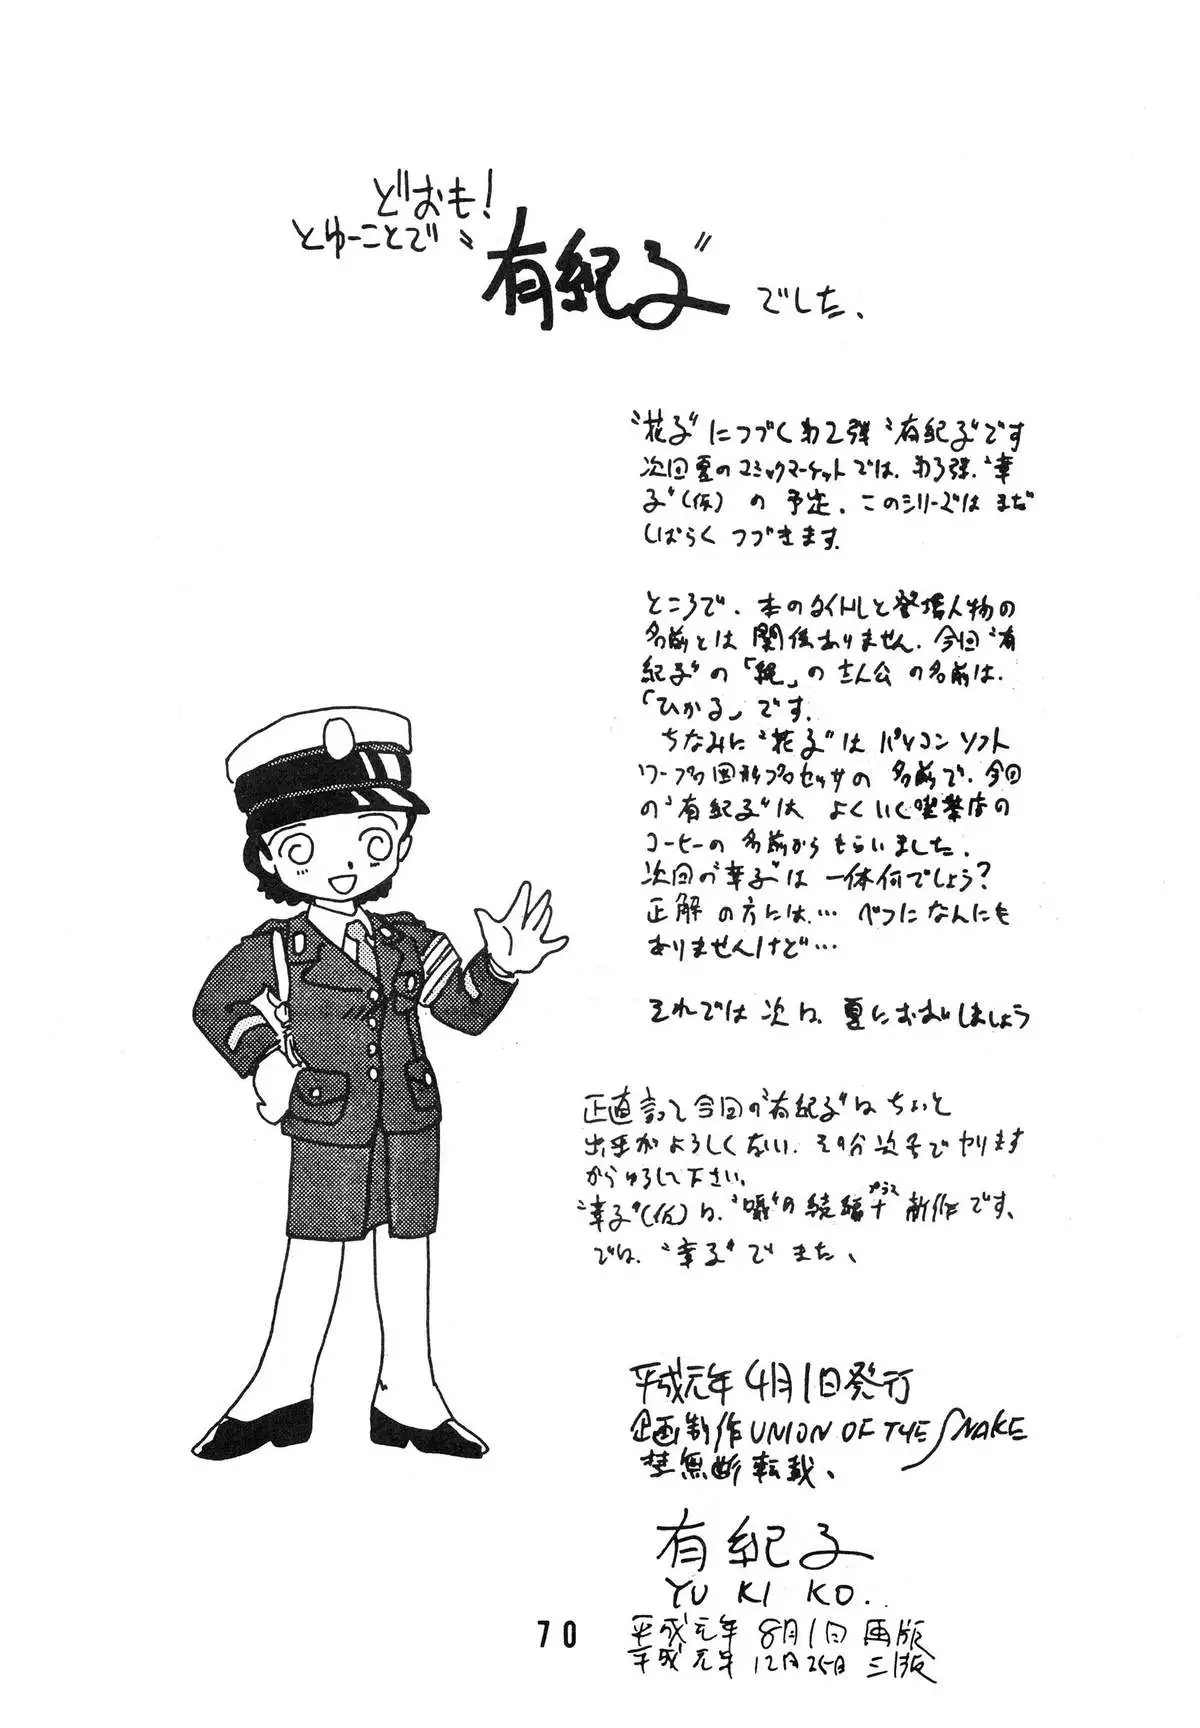 どおも!
とゆーことで
〝有紀子〟でした、
〝花子〟につづくオ2弾〝有紀子〟です
次回夏のコミックマーケットでは、オ3弾、〝幸
子〟(仮) の 予定、このシリーズは まだ
しばらく つづきます。
ところで、本のタイトルと登場人物の
名前とは 関係ありません、今回〝有
紀子〟の「縄」の主人公の名前は、
「ひかる」です。
ちなみに〝花子〟は パソコン ソフト
ワープロ図形プロセッサの 名前で、今回
の〝有紀子〟は よくいく喫茶店の
コーヒーの 名前から もらいました。
次回の〝幸子〟は 一体何でしょう?
正解 の方には… べつになんにも
ありませんけど…
それでは 次は、夏におあいしましょう
正直言って今回の〝有紀子〟は ちょいと
出来が よろしくない、その分 次号で ヤリます
からゆるして下さい。
〝幸子〟(仮)は、の続編+プラス 新作です。
では、〝幸子〟で また、
平成元年4月1日発行
企画制作 UNION OF THE SNAKE
禁無断転載、
有紀子
YU KI KO.
平成元年 8月1日 再版
平成元年 12月25日 三版
70